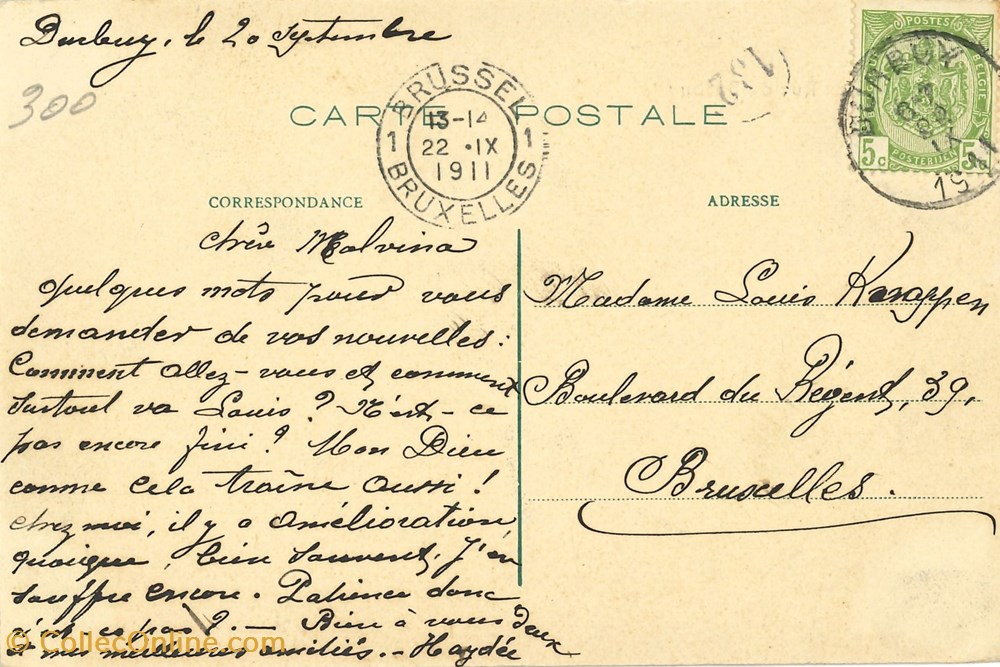 Durbuy, le 20 Septembre
300
CARTE POSTALE
BRUSSEL
1 13-14 1
22 · IX
1911
BRUXELLES
132
DURBUY
22
IX
1911
POSTES
BELGIQUE
5c 5c
POSTERIJEN
CORRESPONDANCE
ADRESSE
Chère Malvina
Quelques mots pour vous
demander de vos nouvelles:
Comment allez-vous et comment
surtout va Louis? N'est-ce
pas encore fini? Mon Dieu
comme cela traîne aussi!
Chez moi, il y a amélioration
quoique, bien souvent, j'en
souffre encore. Patience donc
n'est ce pas?. — Bien à vous deux
et mes meilleures amitiés. — Haydée
Madame Louis Knappen
Boulevard du Régent, 39,
Bruxelles.
© CollecOnline.com